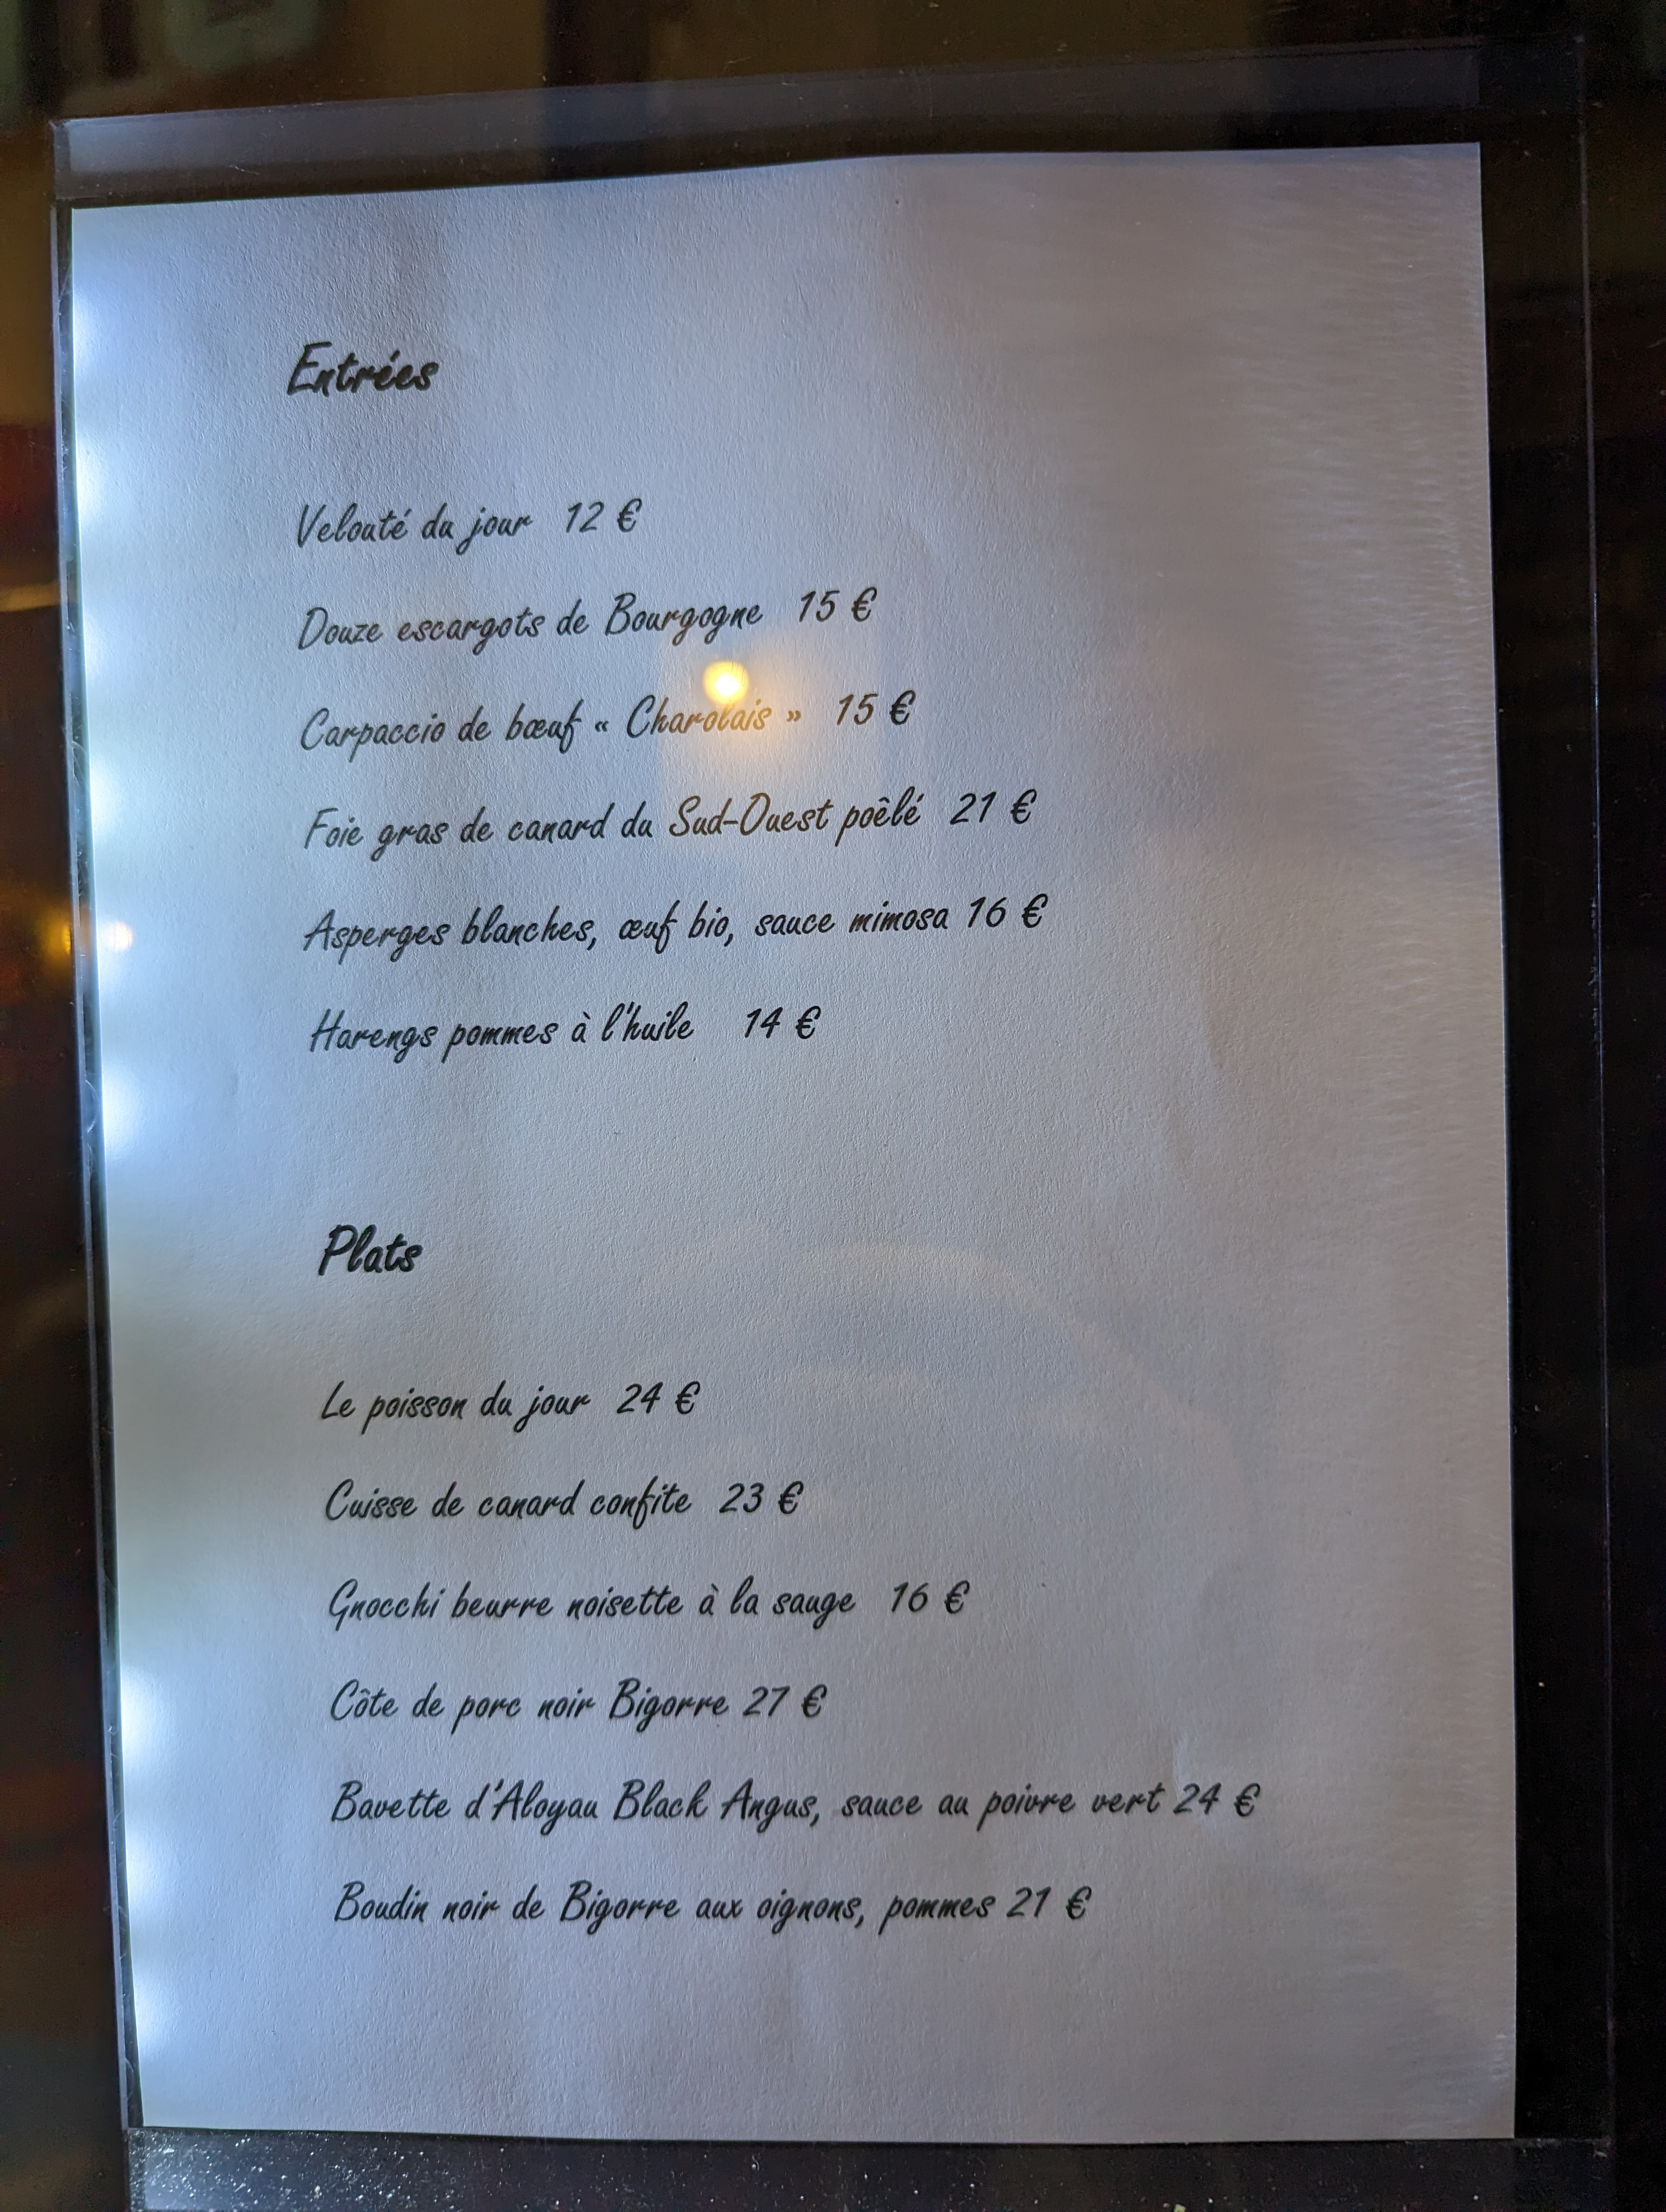 Entrées
Velouté du jour 12 €
Douze escargots de Bourgogne 15 €
Carpaccio de bœuf « Charolais » 15 €
Foie gras de canard du Sud-Ouest poêlé 21 €
Asperges blanches, œuf bio, sauce mimosa 16 €
Harengs pommes à l'huile 14 €
Plats
Le poisson du jour 24 €
Cuisse de canard confite 23 €
Gnocchi beurre noisette à la sauge 16 €
Côte de porc noir Bigorre 27 €
Bavette d'Aloyau Black Angus, sauce au poivre vert 24 €
Boudin noir de Bigorre aux oignons, pommes 21 €